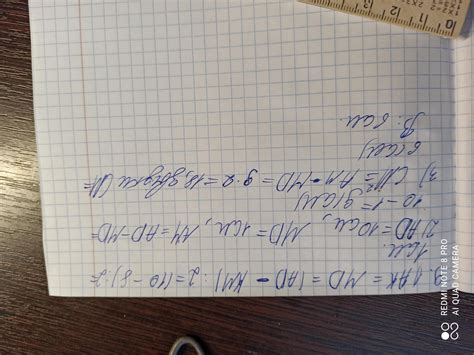 1) AK = MD = (AD - KM) : 2 = (10 - 8) : 2=
1см.
2) AD = 10см, MD = 1см, AM = AD-MD=
10 - 1 = 9(см)
3) CM² = AM · MD = 9 · 2 = 18, звідки CM=
6(см)
В: 6 см.
REDMI NOTE 8 PRO
AI QUAD CAMERA